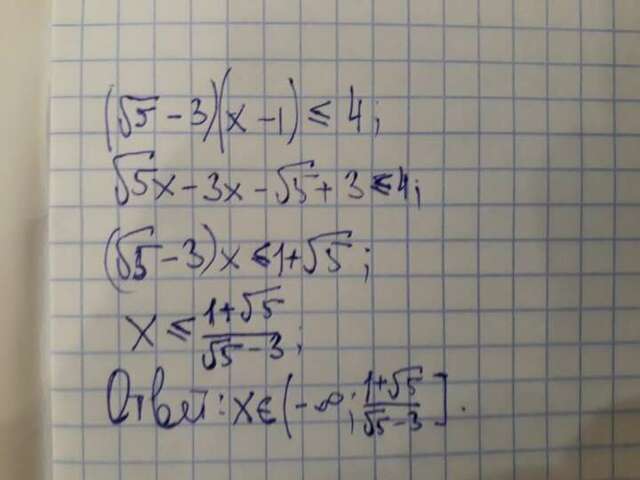 (√5 - 3)(x - 1) ≤ 4;
√5x - 3x - √5 + 3 ≤ 4;
(√5 - 3)x ≤ 1 + √5;
x ≤ (1+√5)/(√5 - 3);
Ответ: x ∈ (-∞; (1+√5)/(√5 - 3)].